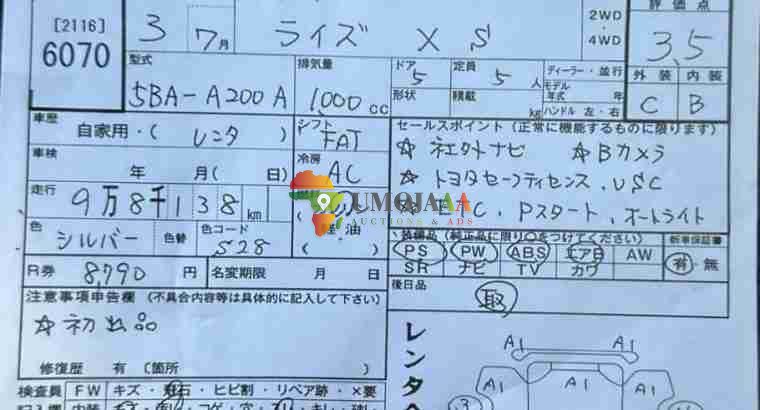 [2116]
6070
3 7月 ライズ X S
2WD・4WD
評価点
3.5
外装 内装
C B
型式
5BA-A200A
排気量
1,000cc
ドア
5
形状
定員
5人
積載
kg
ディーラー・並行
モデル年式 年
ハンドル 左・右
車歴
自家用・(レンタ)
シフト
FAT
車検
年 月 (日)
冷房
AC
走行
9万8千138km
色
シルバー
色替
色コード
S28
軽・油
R券 8,790円 名変期限 月 日
セールスポイント(正常に機能するものに限ります)
☆社外ナビ ☆Bカメラ
☆トヨタセーフティセンス、VSC
C、Pスタート、オートライト
装備品(純正品に限り○をつけてください)
PS PW ABS エアB AW
SR ナビ TV カワ
新車保証書
有・無
後日品
取
注意事項申告欄(不具合内容等は具体的に記入して下さい)
☆初出品
修復歴 有(箇所
レンタ
UMOJAAA
AUCTIONS & ADS
A1 A1
A1 A1
3
検査員 FW キズ・飛石・ヒビ割・リペア跡・×要
記入欄 内装